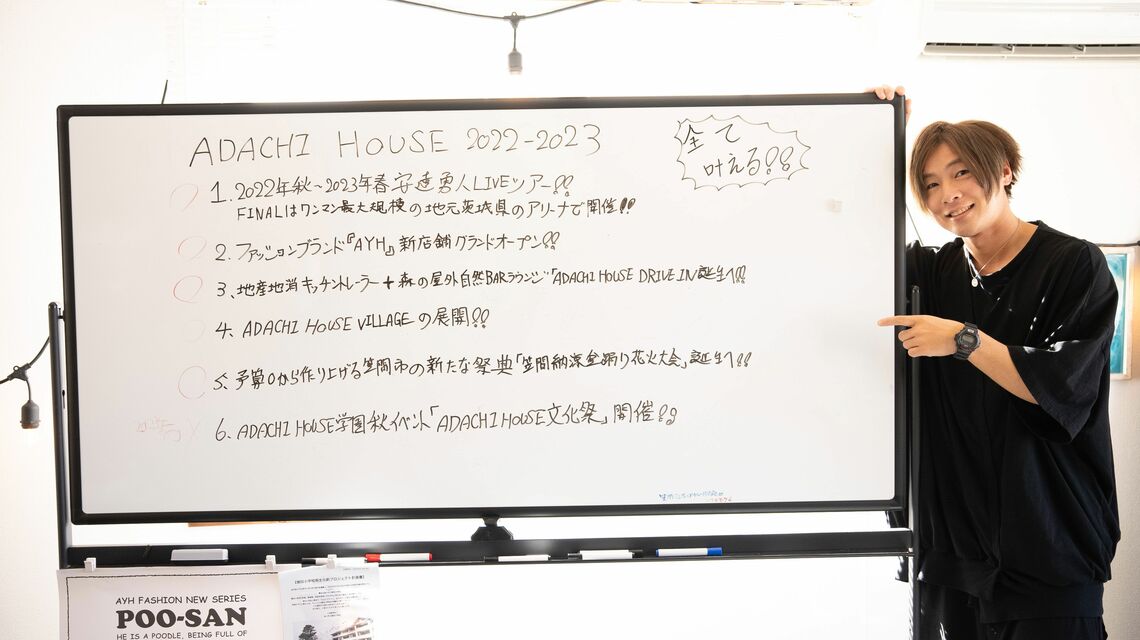 ADACHI HOUSE 2022-2023
全て
叶える!!
1. 2022年秋～2023年春 安達勇人LIVEツアー!!
FINALはワンマン最大規模の地元茨城県のアリーナで開催!!
2. ファッションブランド『AYH』新店舗グランドオープン!!
3、地産地消キッチントレーラー＋森の屋外自然BARラウンジ「ADACHI HOUSE DRIVE IN」誕生へ!!
4、ADACHI HOUSE VILLAGEの展開!!
5、予算0から作り上げる笠間市の新たな祭典「笠間納涼盆踊り花火大会」誕生へ!!
6、ADACHI HOUSE学園秋イベント「ADACHI HOUSE文化祭」開催!!
AYH FASHION NEW SERIES
POO-SAN
HE IS A POODLE, BEING FULL OF